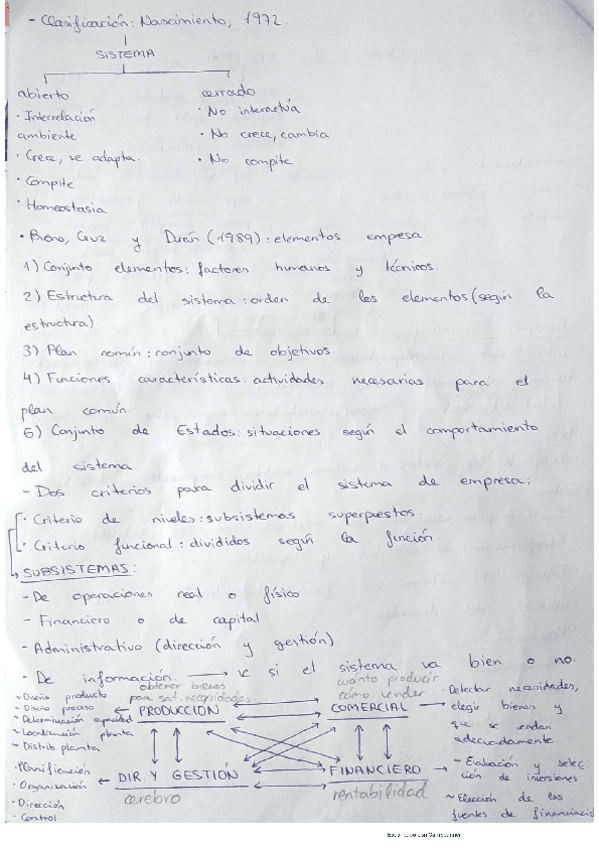 - Clasificación: Nascimiento, 1972.
SISTEMA
abierto
· Interrelación
ambiente
· Crece, se adapta.
· Compite
· Homeostasia
cerrado
· No interactúa
· No crece, cambia
· No compite
· Bueno, Cruz y Durán (1989): elementos empresa.
1) Conjunto elementos: factores humanos y técnicos.
2) Estructura del sistema: orden de los elementos (según la
estructura).
3) Plan común: conjunto de objetivos.
4) Funciones características: actividades necesarias para el
plan común.
5) Conjunto de Estados: situaciones según el comportamiento
del sistema.
- Dos criterios para dividir el sistema de empresa:
· Criterio de niveles: subsistemas superpuestos.
· Criterio funcional: divididos según la función.
SUBSISTEMAS:
- De operaciones real o físico
- Financiero o de capital
- Administrativo (dirección y gestión)
- De información. → ve si el sistema va bien o no.
~ Diseño producto
~ Diseño proceso
~ Determinación capacidad
~ Localización planta
~ Distrib. planta
obtener bienes
para sat. necesidades
PRODUCCIÓN
cuánto producir
cómo vender
COMERCIAL
· Detectar necesidades,
elegir bienes y
que se vendan
adecuadamente
· Planificación
· Organización
· Dirección
· Control
DIR. Y GESTIÓN
cerebro
FINANCIERO
rentabilidad
~ Evaluación y selec
ción de inversiones
~ Elección de las
fuentes de financiació